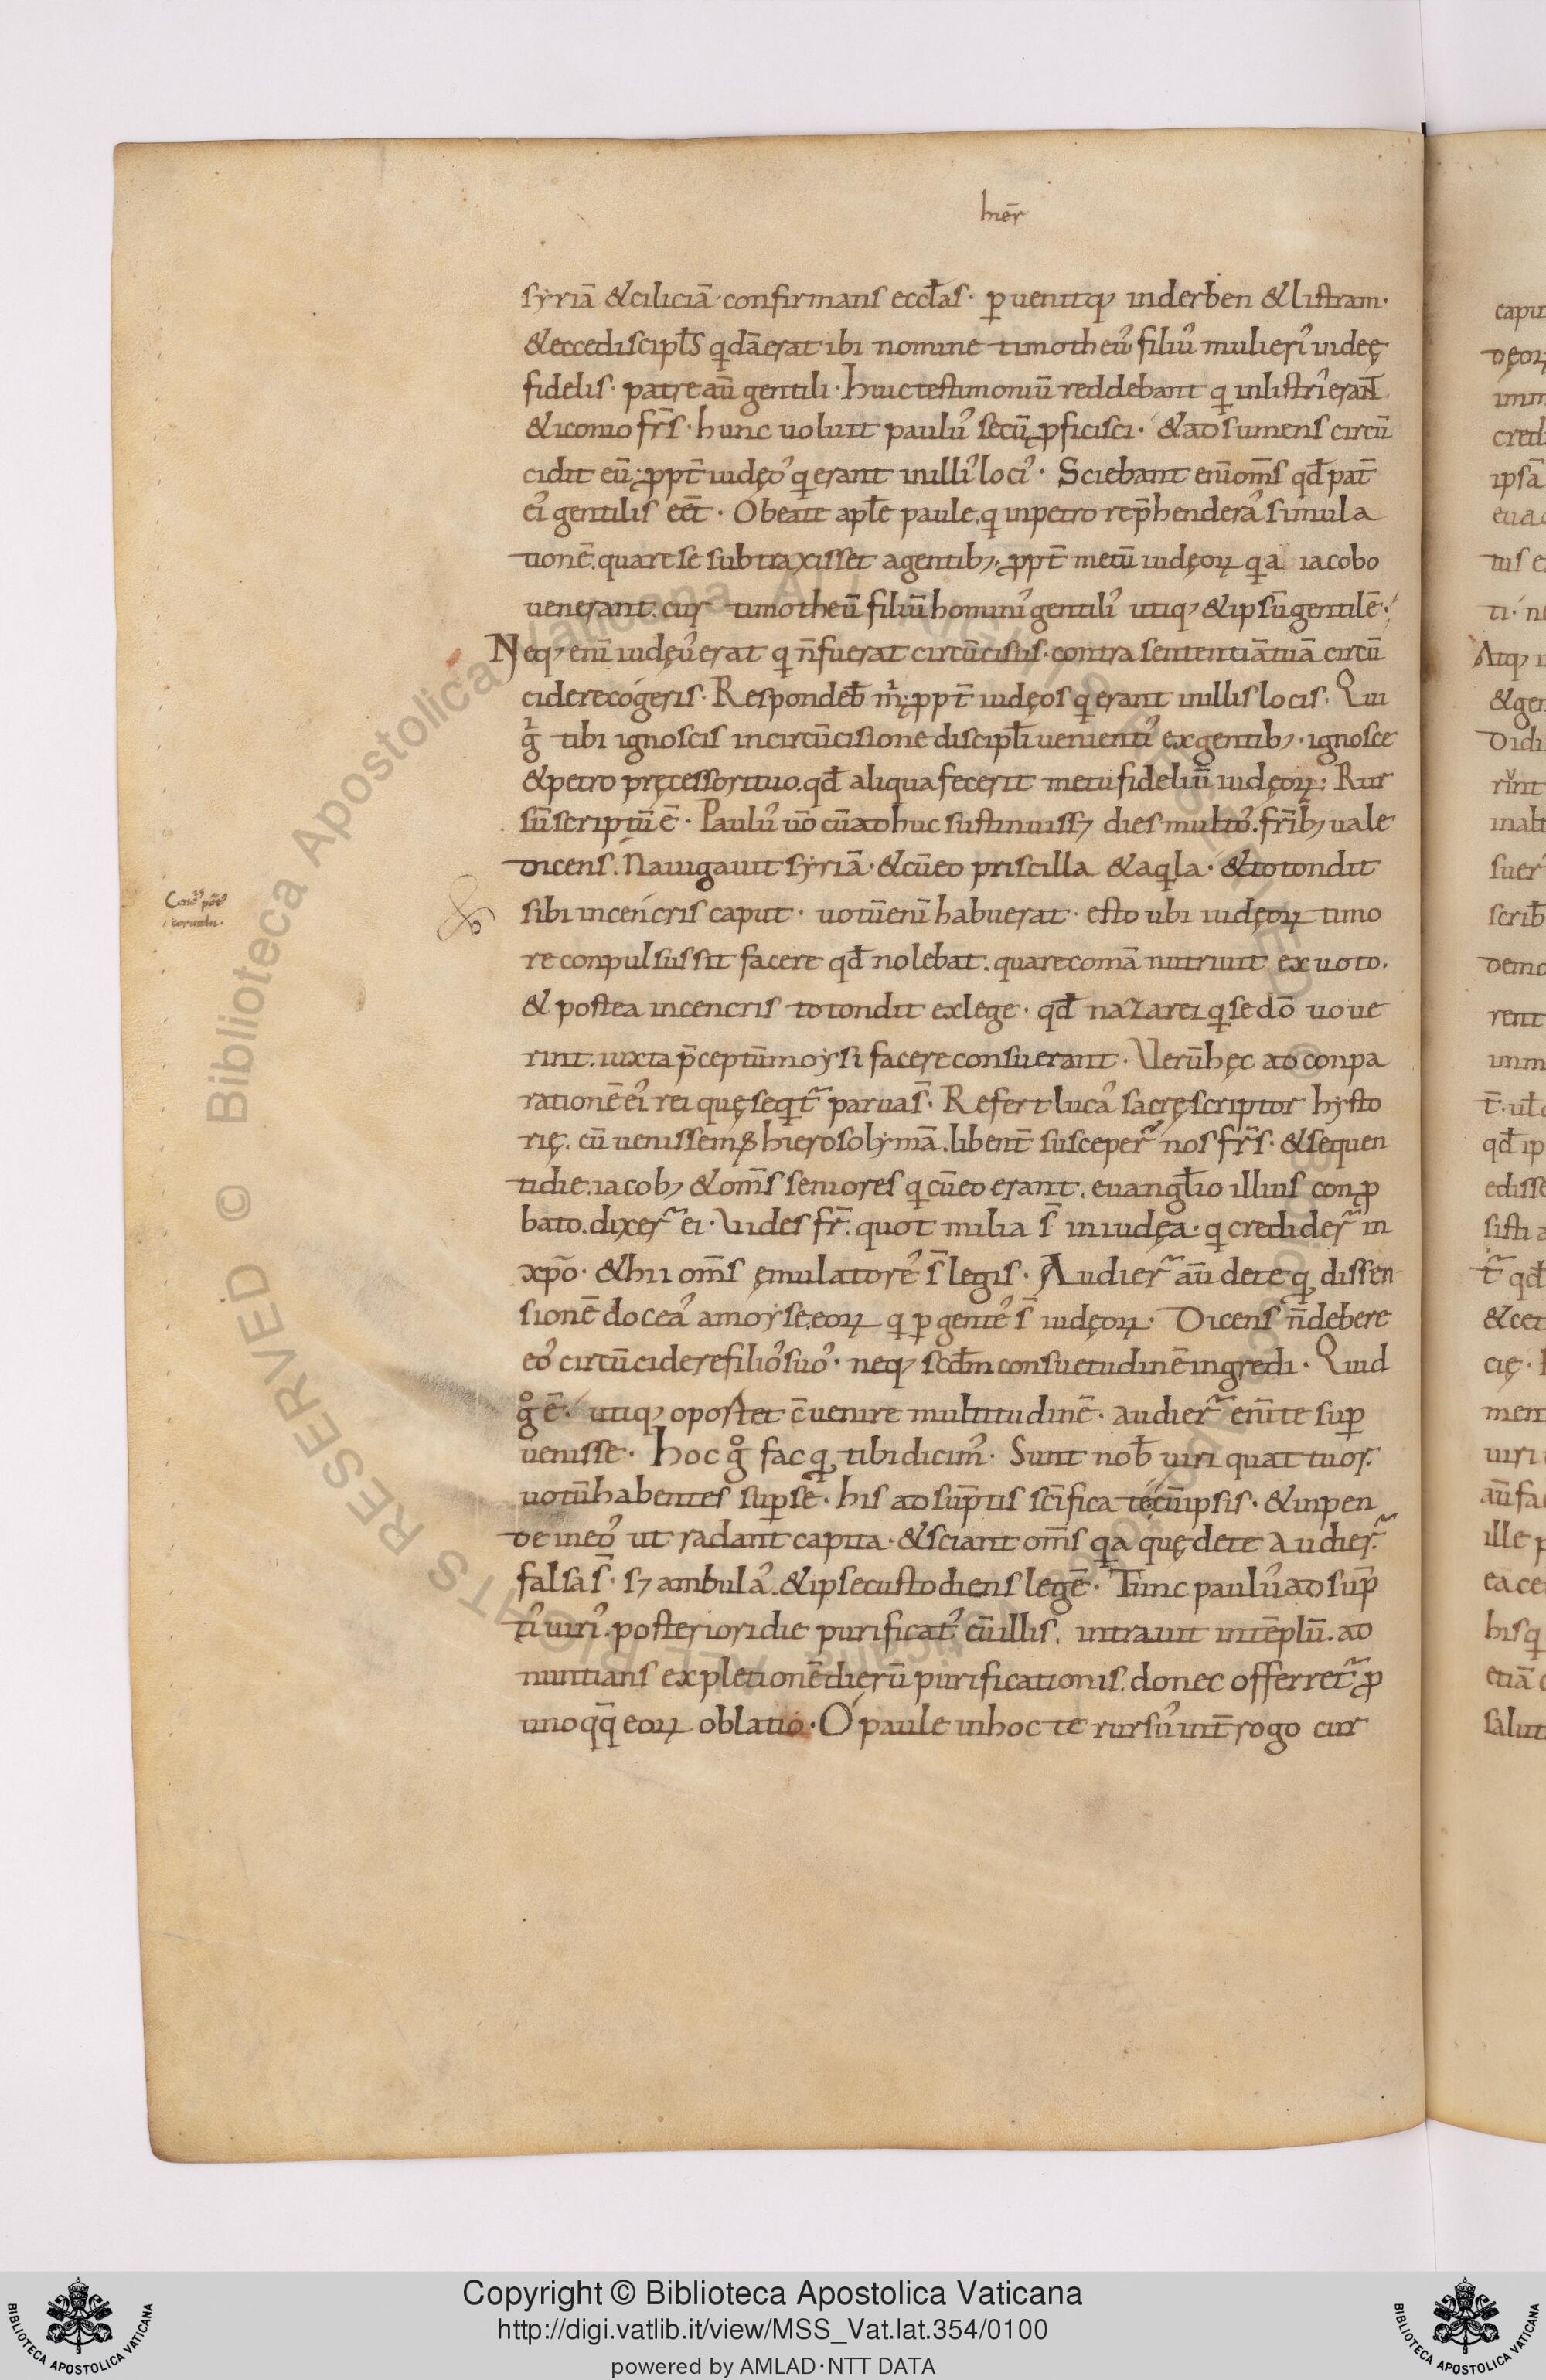 hiēr
syriā & ciliciā confirmans eccłas · ꝑuenitq; in derben & listram ·
& ecce discipłs qdā erat ibi nomine timotheuʼ filiuʼ mulieriʼ iudeę
fidelis · patre aū gentili · huic testimoniū reddebant q in listriʼ eran̄t
& iconio frs̄ · hunc uoluit pauluʼ secū ꝓficisci · & adsumens circū
cidit eū ꝓpt̄ iudęoʼ q erant in illiʼ lociʼ · Sciebant enī om̄s qđ pat̄
eiʼ gentilis eēt · O beate apłe paule, q in petro rep̄henderaʼ simula
tionē . quare se subtraxisset a gentib; ꝓpt̄ metū iudęoꝝ q a iacobo
uenerant . cur timotheū filiū hominiʼ gentiliʼ utiq; & ipsū gentilē ·
Neq; enī iudęuʼ erat q n̄ fuerat circūcisus · contra sententiā tuā circū
cidere cogeris · Respondeƀ m ꝓpt̄ iudęos q erant in illis locis · Qui
g tibi ignoscis in circūcisione discipłi uenientiʼ ex gentib; · ignosce
& petro pręcessori tuo . qđ aliqua fecerit metu fideliū iudęoꝝ · Rur
sū scriptū ē · Pauluʼ uō cū adhuc sustinuiss; dies multoʼ . frīb; uale
dicens . Nauigauit syriā · & cū eo priscilla & aqla · & totondit
Cencʼ portʼ
corinthi ·
sibi in cencris caput · uotū enī habuerat · esto ubi iudęoꝝ timo
re conpulsus sit facere qđ nolebat . quare comā nutriuit ex uoto .
& postea in cencris totondit ex lege · qđ nazarei q se dō uoue
rint . iuxta p̄ceptū moysi facere consuerant · Verū hęc ad conpa
rationē eiʼ rei quę seqt̄ parua s̄ · Refert lucaʼ sacrę scriptor hysto
rię . cū uenissemꝰ hierosolymā . libent̄ susceper̄ nos frs̄ · & sequen
ti die . iacob; & om̄s seniores q cū eo erant . euangłio illius conꝓ
bato . dixer̄ ei · Vides fr̄ . quot milia s̄ in iudęa · q credider̄ in
xp̄o · & hii om̄s ęmulatoreʼ s̄ legis · Audier̄ aū de te q dissen
sionē doceaʼ a moyse, eoꝝ q ꝑ genteʼ s̄ iudęoꝝ · Dicens n̄ debere
eoʼ circūcidere filioʼ suoʼ · neq; scđm consuetudinē ingredi · Quid
gͦ ē · utiq; oportet c̄uenire multitudinē · audier̄ enī te suꝑ
uenisse · Hoc gͦ fac q tibi dicimʼ · Sunt noƀ uiri quattuor .
uotū habentes suꝑ se · his adsūptis sc̄ifica te cū ipsis · & inpen
de in eoʼ ut radant capita · & sciant om̄s qa quę de te audier̄ .
falsa s̄ · s; ambulaʼ . & ipse custodiens legē · Tunc pauluʼ adsūp
tiʼ uiriʼ . posteriori die purificatʼ cū illis . intrauit in tēplū . ad
nuntians expletionē dierū purificationis . donec offerret̄ ꝓ
uno qq eoꝝ oblatio · O paule in hoc te rursuʼ int̄rogo cur
Copyright © Biblioteca Apostolica Vaticana
http://digi.vatlib.it/view/MSS_Vat.lat.354/0100
powered by AMLAD·NTT DATA
BIBLIOTECA APOSTOLICA VATICANA
BIBLIOTECA APOSTOLICA VATICANA